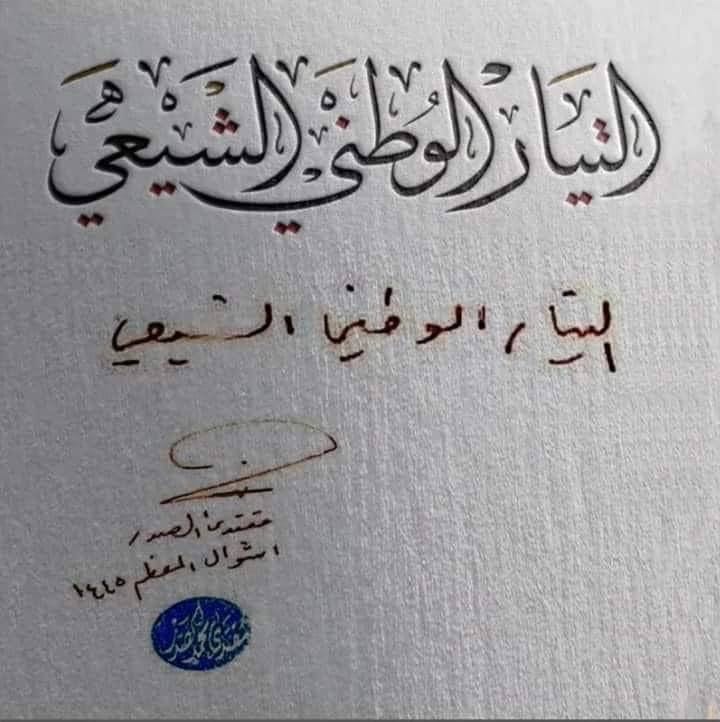 التيار الوطني الشيعي
التيار الوطني الشيعي
مقتدى الصدر
١ شوال المعظم ١٤٤٥
مقتدى محمد الصدر